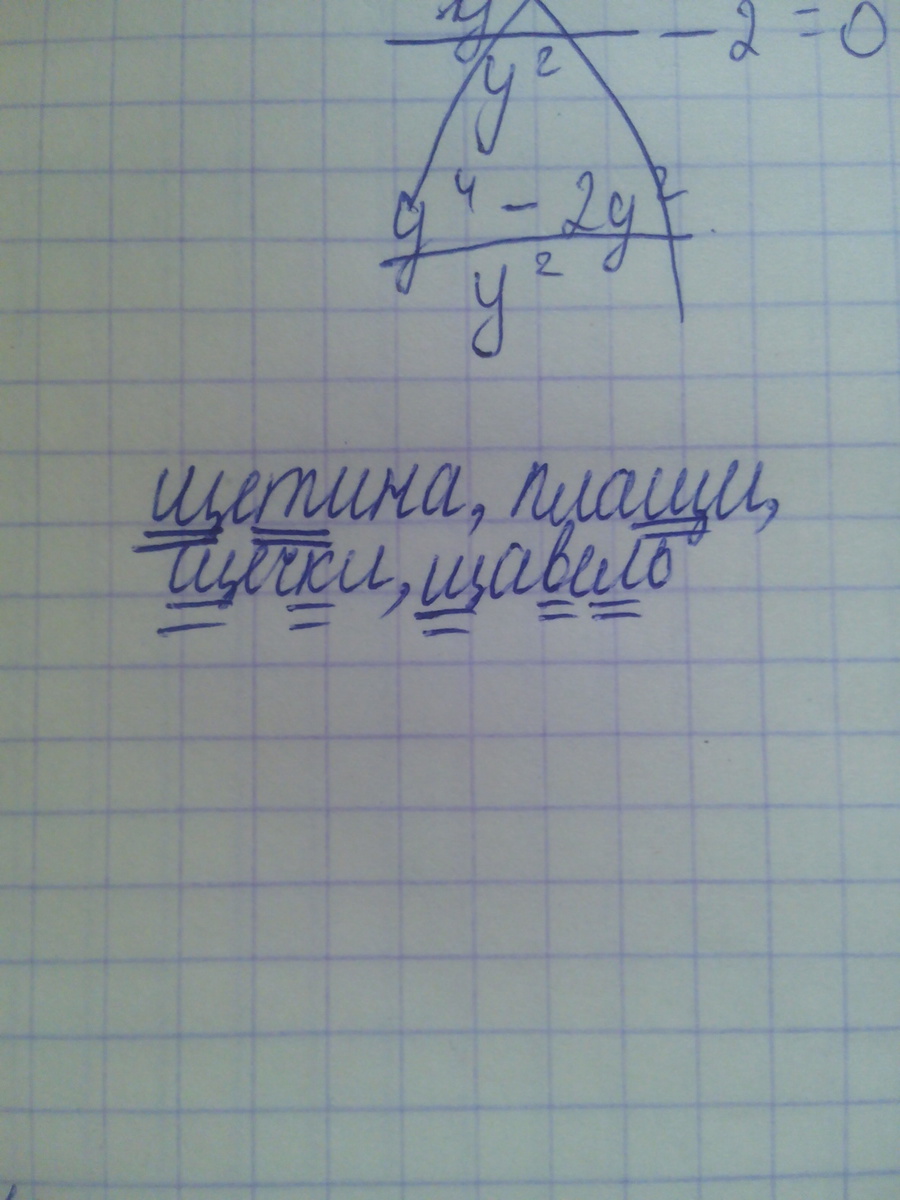 y
— - 2 = 0
y²
y⁴ - 2y²
y²
щетина, плащи,
щечки, щавель